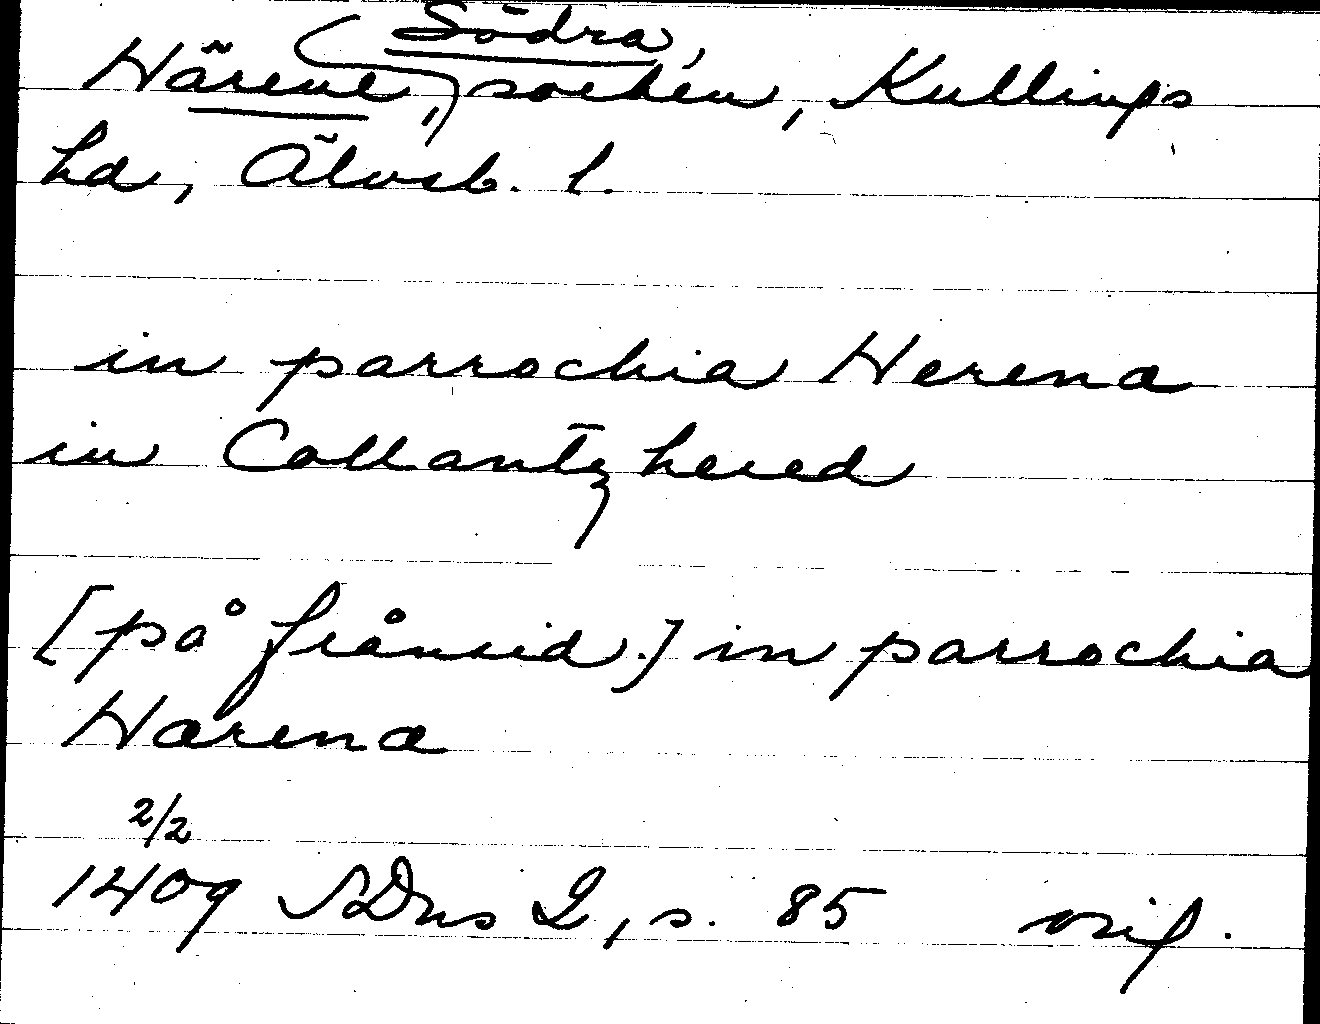 Härene, (Södra,) socken, Kullings
hd, Älvsb. l.
in parrochia Herena
in Collantz hered
[på frånsid.] in parrochia
Hærena
2/2
1409 SDns 2, s. 85 orig.